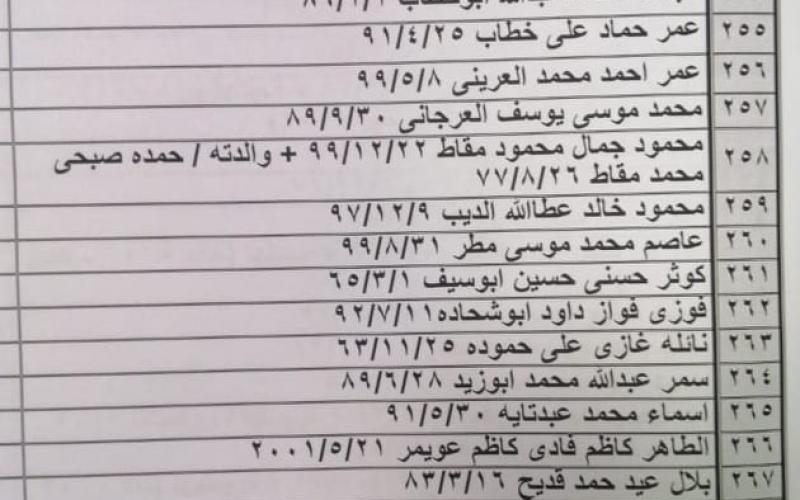 ٢٥٥ عمر حماد على خطاب ٩١/٤/٢٥
٢٥٦ عمر احمد محمد العرينى ٩٩/٥/٨
٢٥٧ محمد موسى يوسف العرجانى ٨٩/٩/٣٠
٢٥٨ محمود جمال محمود مقاط ٩٩/١٢/٢٢ + والدته / حمده صبحى
محمد مقاط ٧٧/٨/٢٦
٢٥٩ محمود خالد عطاالله الديب ٩٧/١٢/٩
٢٦٠ عاصم محمد موسى مطر ٩٩/٨/٣١
٢٦١ كوثر حسنى حسين ابوسيف ٦٥/٣/١
٢٦٢ فوزى فواز داود ابوشحاده ٩٢/٧/١١
٢٦٣ نائله غازى على حموده ٦٣/١١/٢٥
٢٦٤ سمر عبدالله محمد ابوزيد ٨٩/٦/٢٨
٢٦٥ اسماء محمد عبدتايه ٩١/٥/٣٠
٢٦٦ الطاهر كاظم فادى كاظم عويمر ٢٠٠١/٥/٢١
٢٦٧ بلال عيد حمد قديح ٨٣/٣/١٦